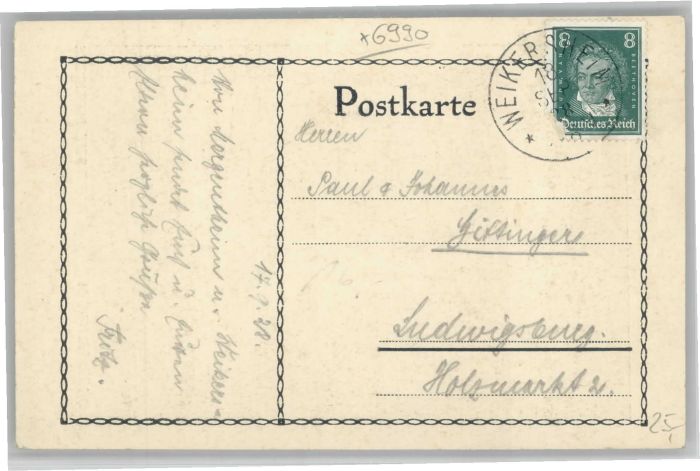 *6990
Postkarte
8 8
BEETHOVEN
Deutsches Reich
WEIKERSHEIM
18
SEP
Herren
Paul & Johannes
Gittinger
Ludwigsburg.
Holzmarkt 2.
17.9.28.
Von Mergentheim u. Weikers=
heim sendet Euch u. Euern
herzliche Grüße
Fritz.
25,-